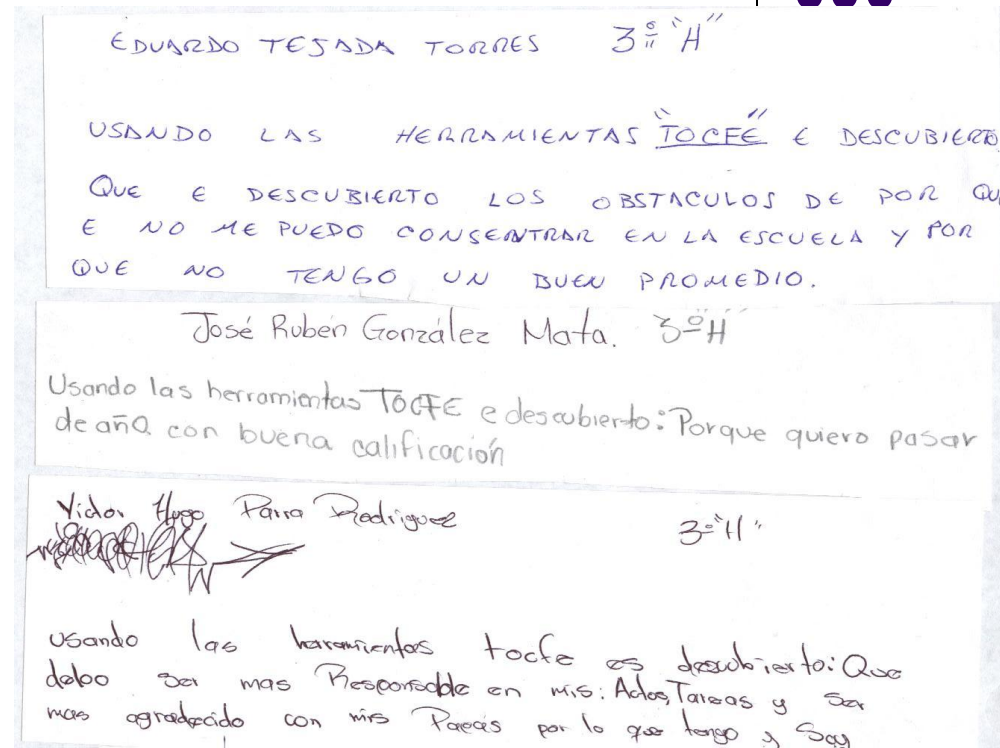 EDUARDO TEJADA TORRES 3º "H"
USANDO LAS HERRAMIENTAS "TOCFE" E DESCUBIERTO
QUE E DESCUBIERTO LOS OBSTACULOS DE POR QU
E NO ME PUEDO CONSENTRAR EN LA ESCUELA Y POR
QUE NO TENGO UN BUEN PROMEDIO.
José Ruben González Mata. 3º H
Usando las herramientas TOCFE e descubierto: Porque quiero pasar
de año con buena calificación
Victor Hugo Parra Rodriguez 3º "H"
usando las herramientas tocfe es descubierto: Que
debo ser mas Responsable en mis: Actos, Tareas y Ser
mas agradecido con mis por lo que tengo y Soy